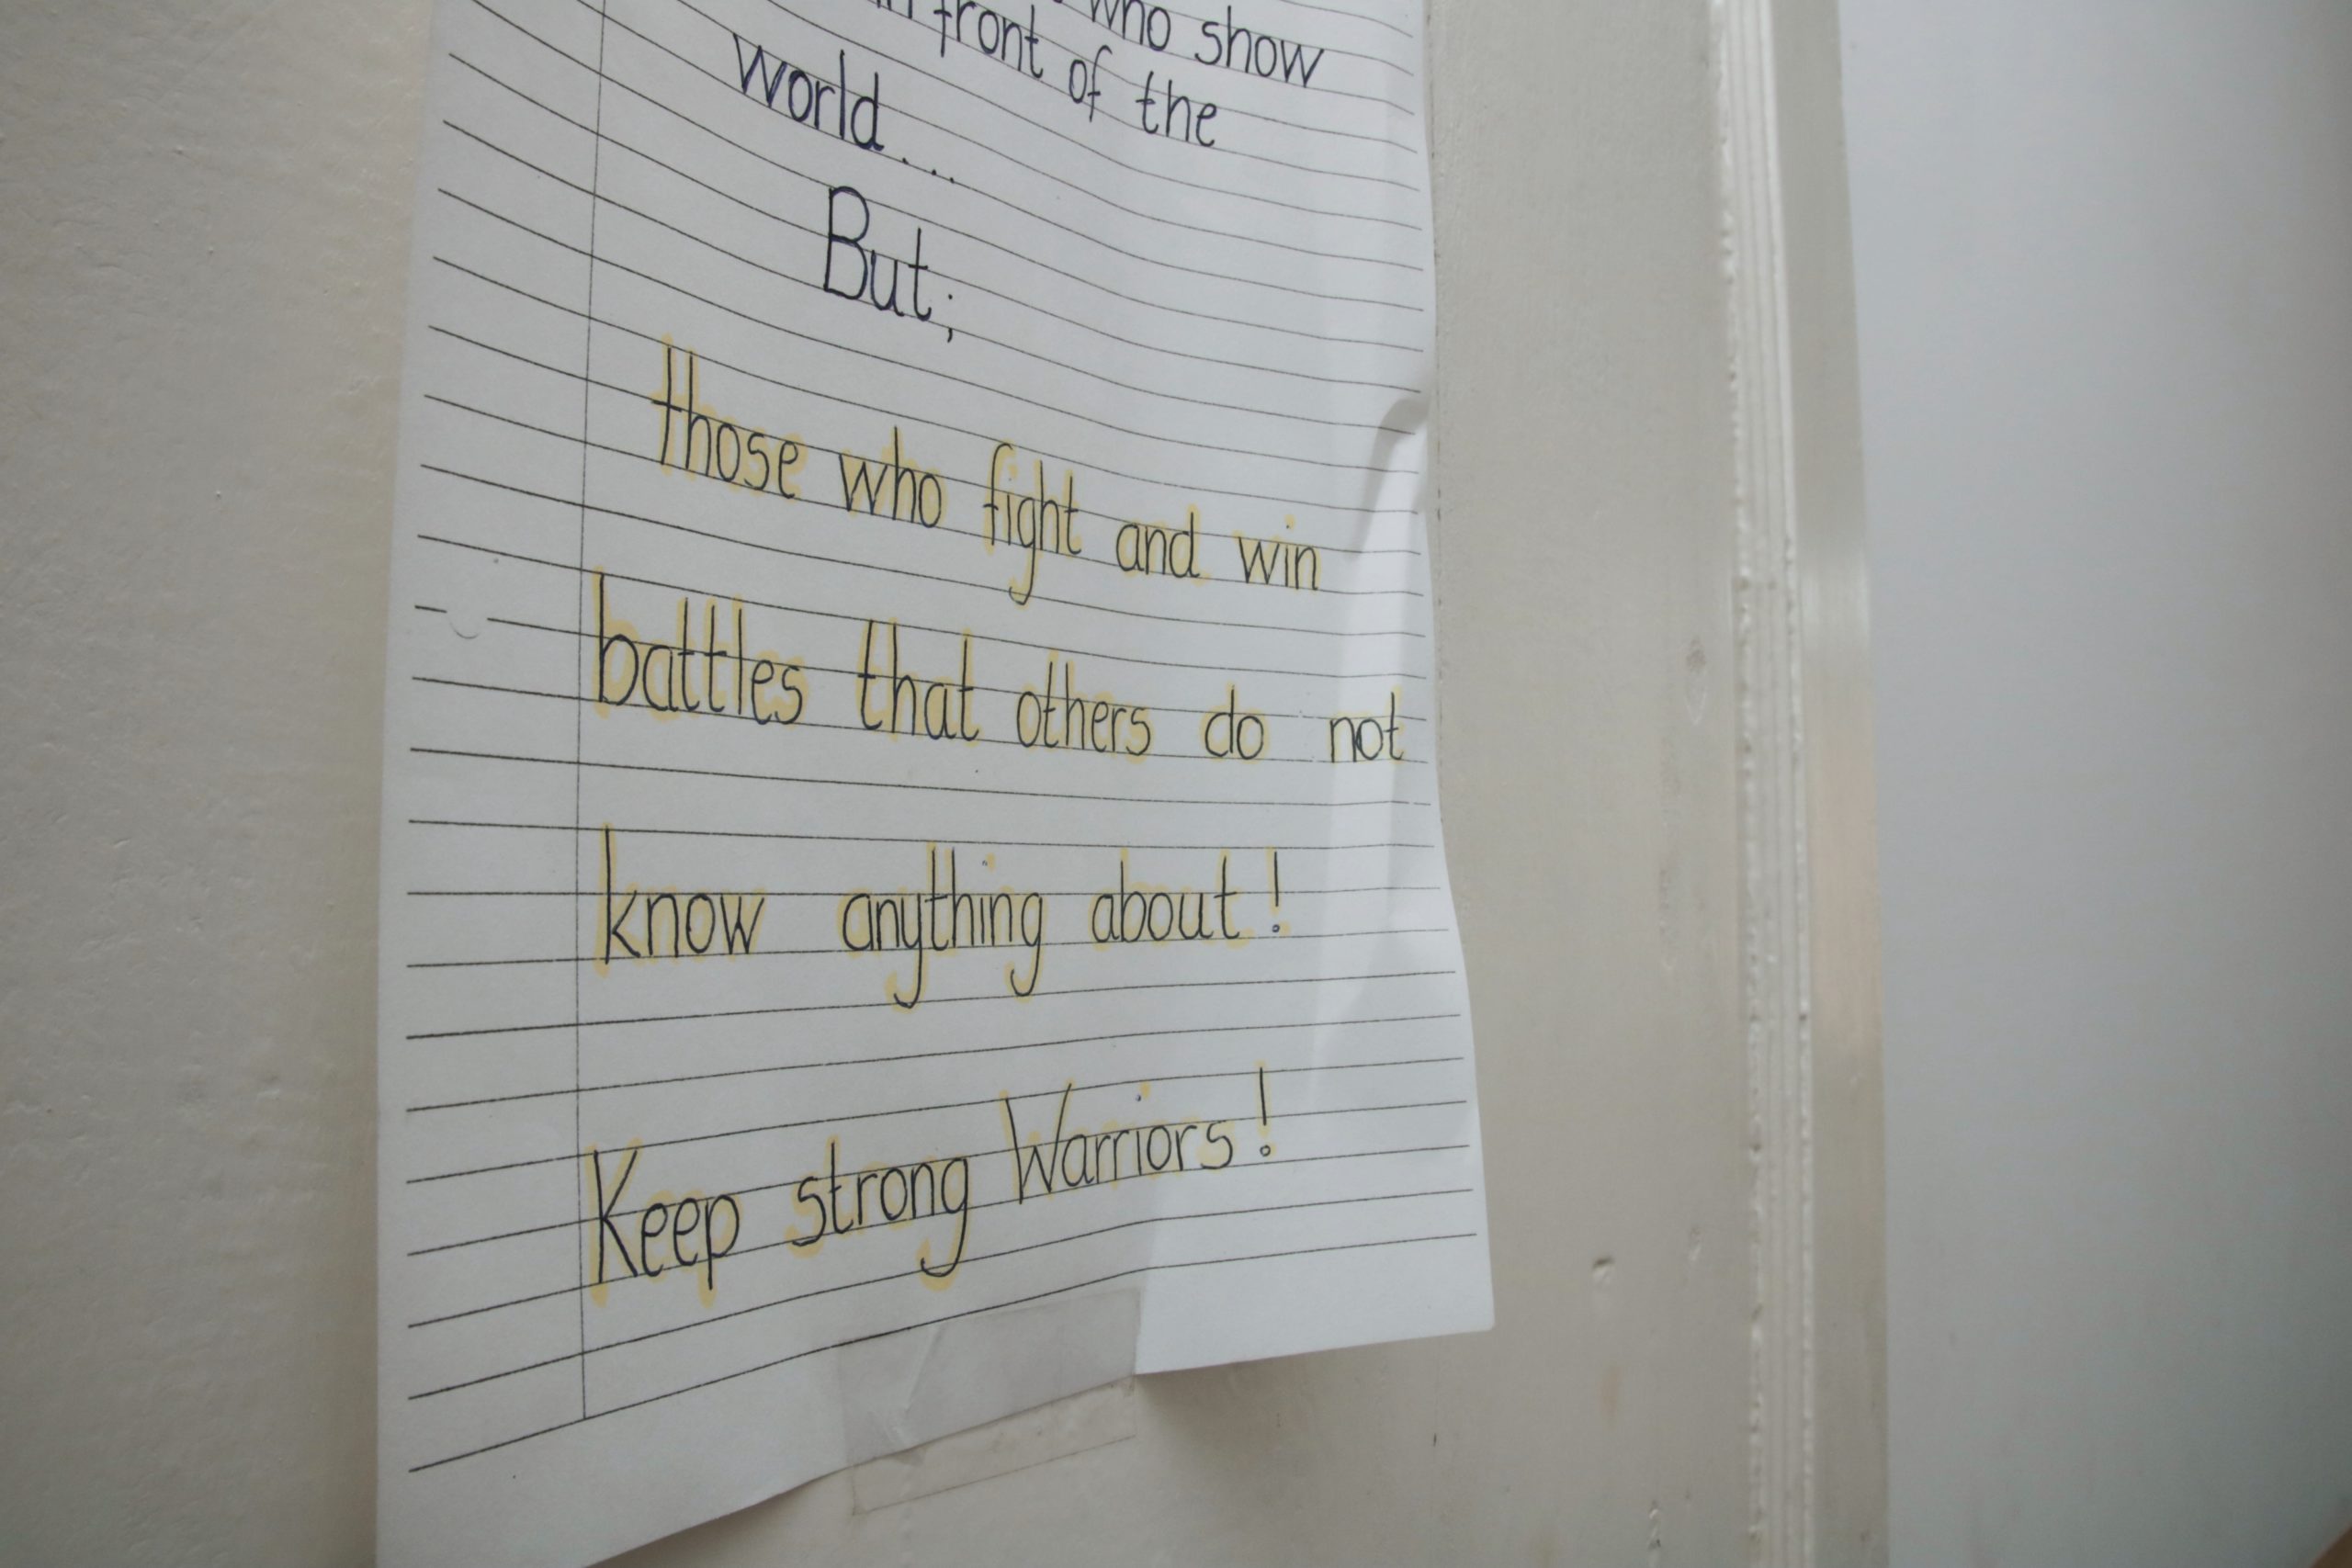 who show
in front of the
world...
But;
those who fight and win
battles that others do not
know anything about!
Keep strong Warriors!